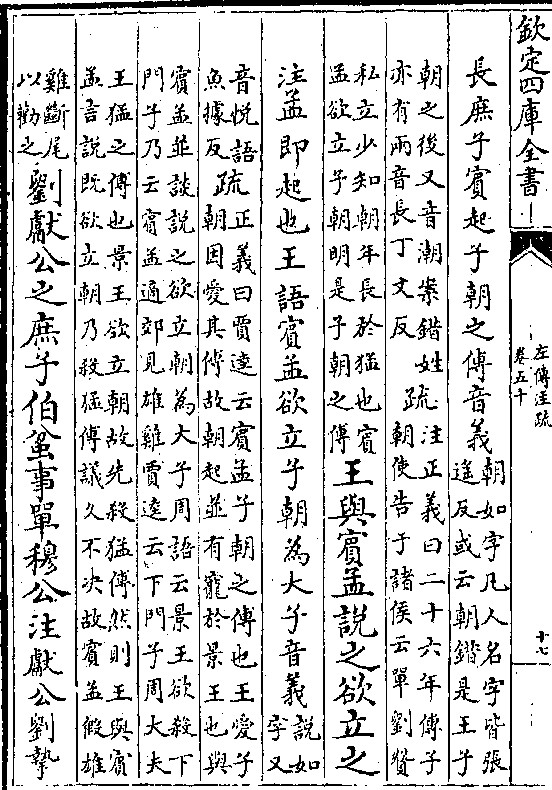 欽定四庫全書
左傳注疏
卷五十
十七
長庶子賓起子朝之傅音義
朝如字凡人名字皆張
遥反或云朝錯是王子
朝之後又音潮案錯姓
亦有兩音長丁丈反
疏
注正義曰二十六年傳子
朝使告于諸侯云單劉贊
私立少知朝年長於猛也賓
孟欲立子朝明是子朝之傅
王與賓孟說之欲立之
注孟即起也王語賓孟欲立子朝為大子音義
說如
字又
音悅語
魚據反
疏
正義曰賈逵云賓孟子朝之傅也王愛子
朝因愛其傅故朝起並有寵於景王也與
賓孟並談說之欲立朝為大子周語云景王欲殺下
門子乃云賓孟適郊見雄雞賈逵云下門子周大夫
王猛之傅也景王欲立朝故先殺猛傅然則王與賓
孟言說既欲立朝乃殺猛傅議久不決故賓孟假雄
雞斷尾
以勸之
劉獻公之庶子伯蚠事單穆公注獻公劉摯